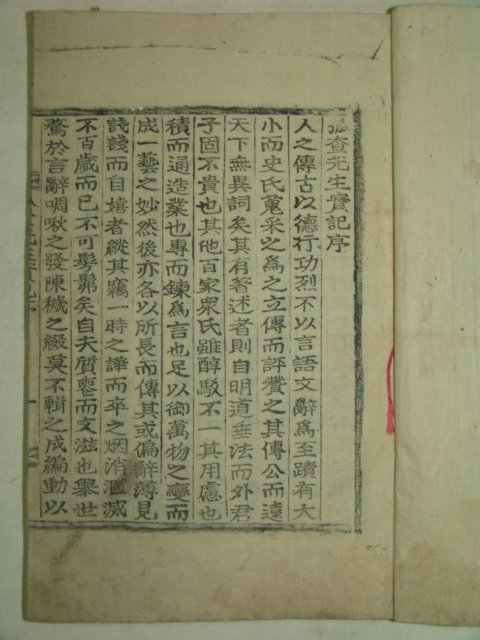 孤査先生實記序
人之傳古以德行功烈不以言語文辭爲至蹟有大
小而史氏蒐采之爲之立傳而評贊之其傳公而遠
天下無異詞矣其有著述者則自明道垂法而外君
子固不貴也其他百家衆氏雖醇駁不一其用慮也
積而通造業也專而鍊爲言也足以御萬物之變而
成一藝之妙然後亦各以所長而傳其或偏辭薄見
諓諓而自嬉者縱其竊一時之譁而卒之烟消漚滅
不百歲而已不可髣髴矣自天質喪而文滋也擧世
騖於言辭啁啾之發陳穢之綴莫不輯之成編動以